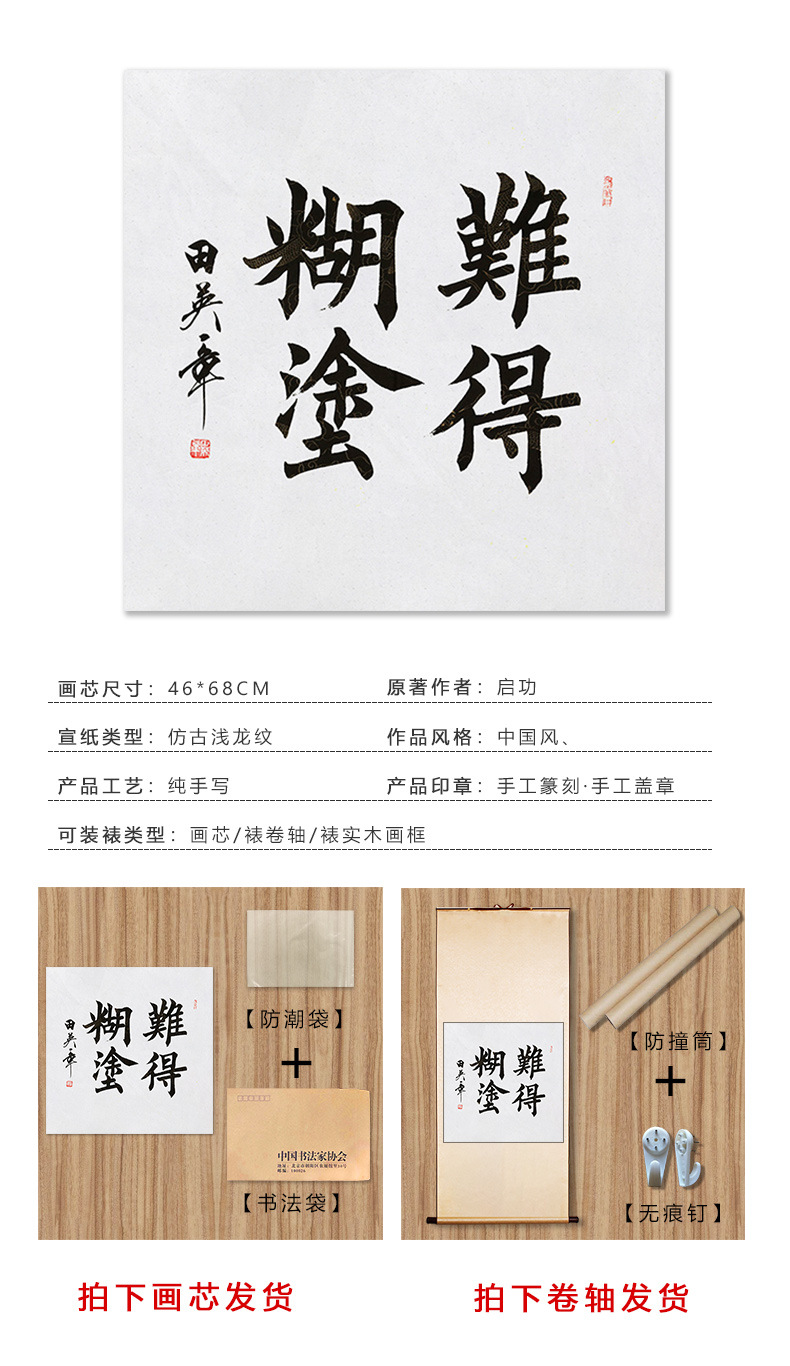 難得
糊塗
田英章
画芯尺寸：46*68CM
原著作者：启功
宣纸类型：仿古浅龙纹
作品风格：中国风、
产品工艺：纯手写
产品印章：手工篆刻·手工盖章
可装裱类型：画芯/裱卷轴/裱实木画框
難得
糊塗
田英章
【防潮袋】
+
中国书法家协会
【书法袋】
難得
糊塗
田英章
【防撞筒】
+
【无痕钉】
拍下画芯发货
拍下卷轴发货